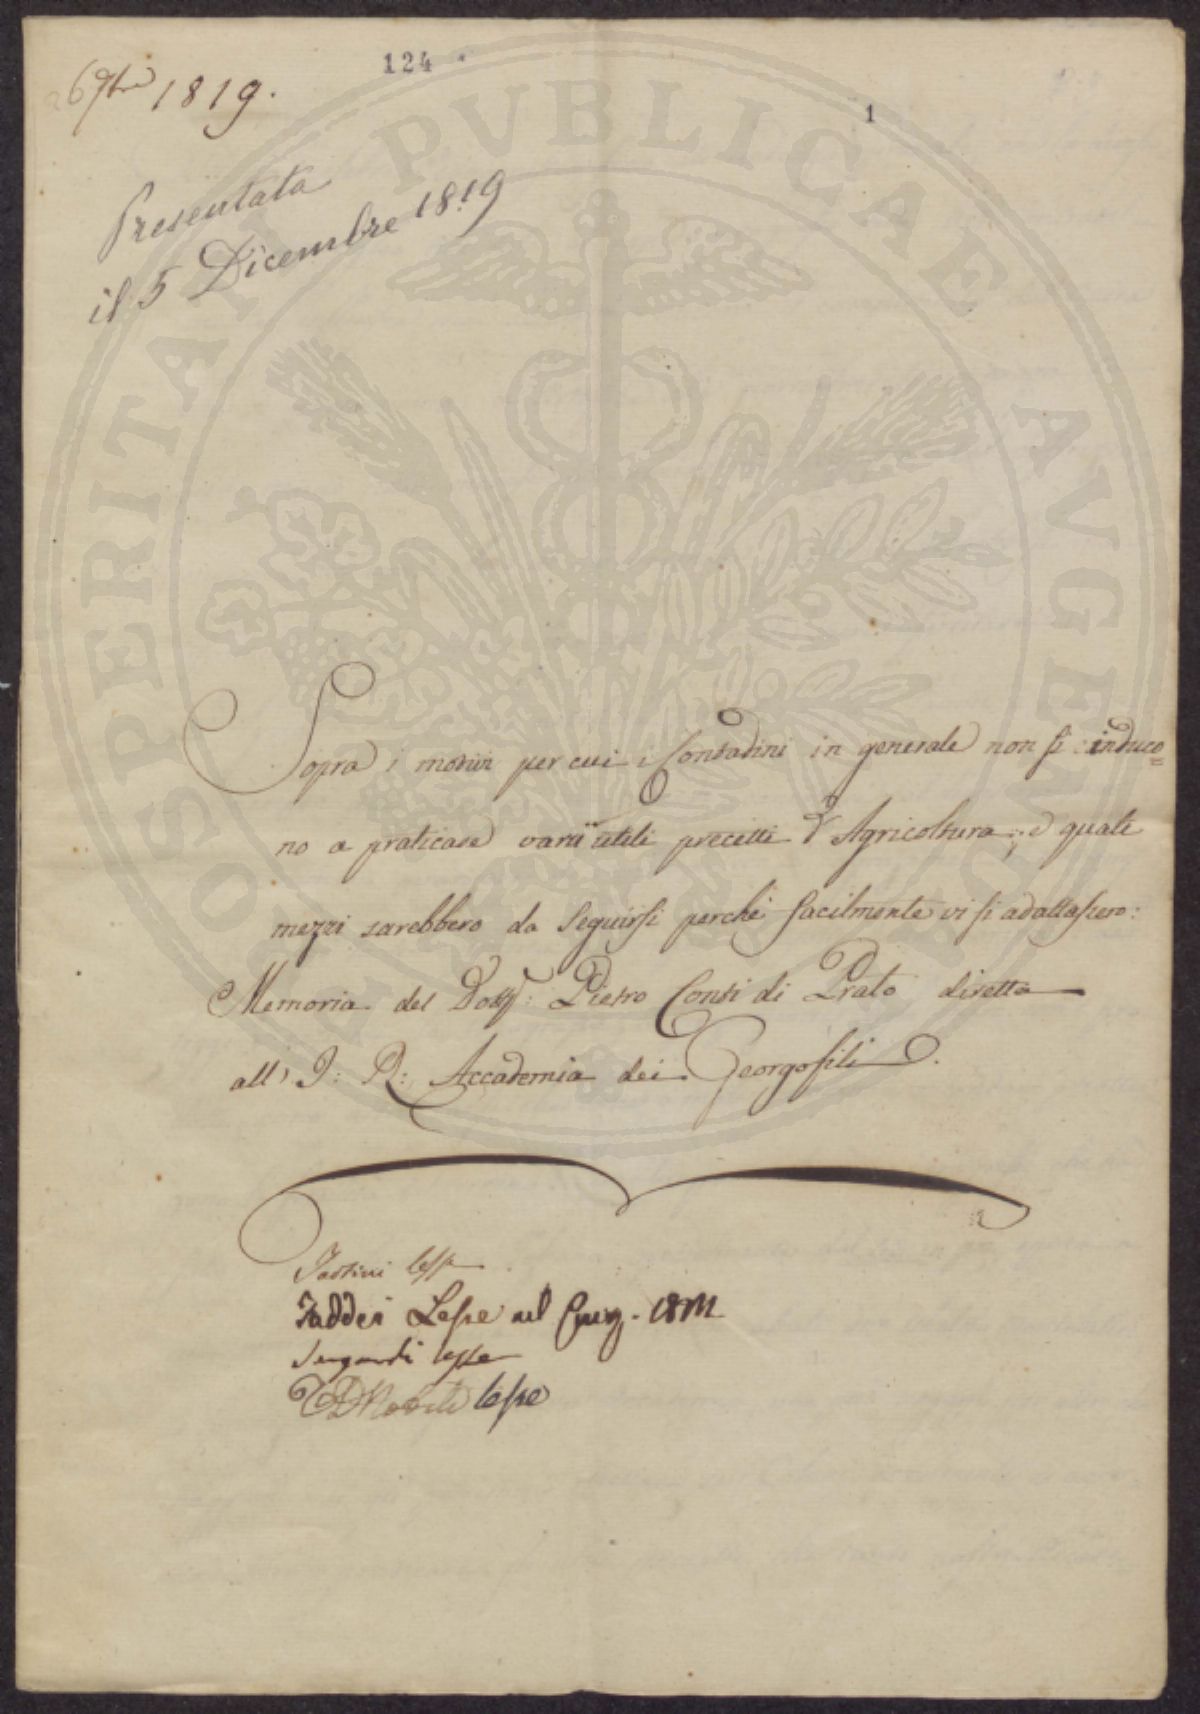 124
1
6 9bre 1819.
Presentata
il 5 Dicembre 1819
Sopra i motivi per cui i Contadini in generale non si induco=
no a praticare varii utili precetti d'Agricoltura; e quali
mezzi sarebbero da seguirsi perchè facilmente vi si adattassero:
Memoria del Dott.: Pietro Conti di Prato diretta
all' I: R: Accademia dei Georgofili.
Tartini lesse
Taddei Lesse nel
lesse
lesse
PROSPERITATI PVBLICAE AVGENDAE